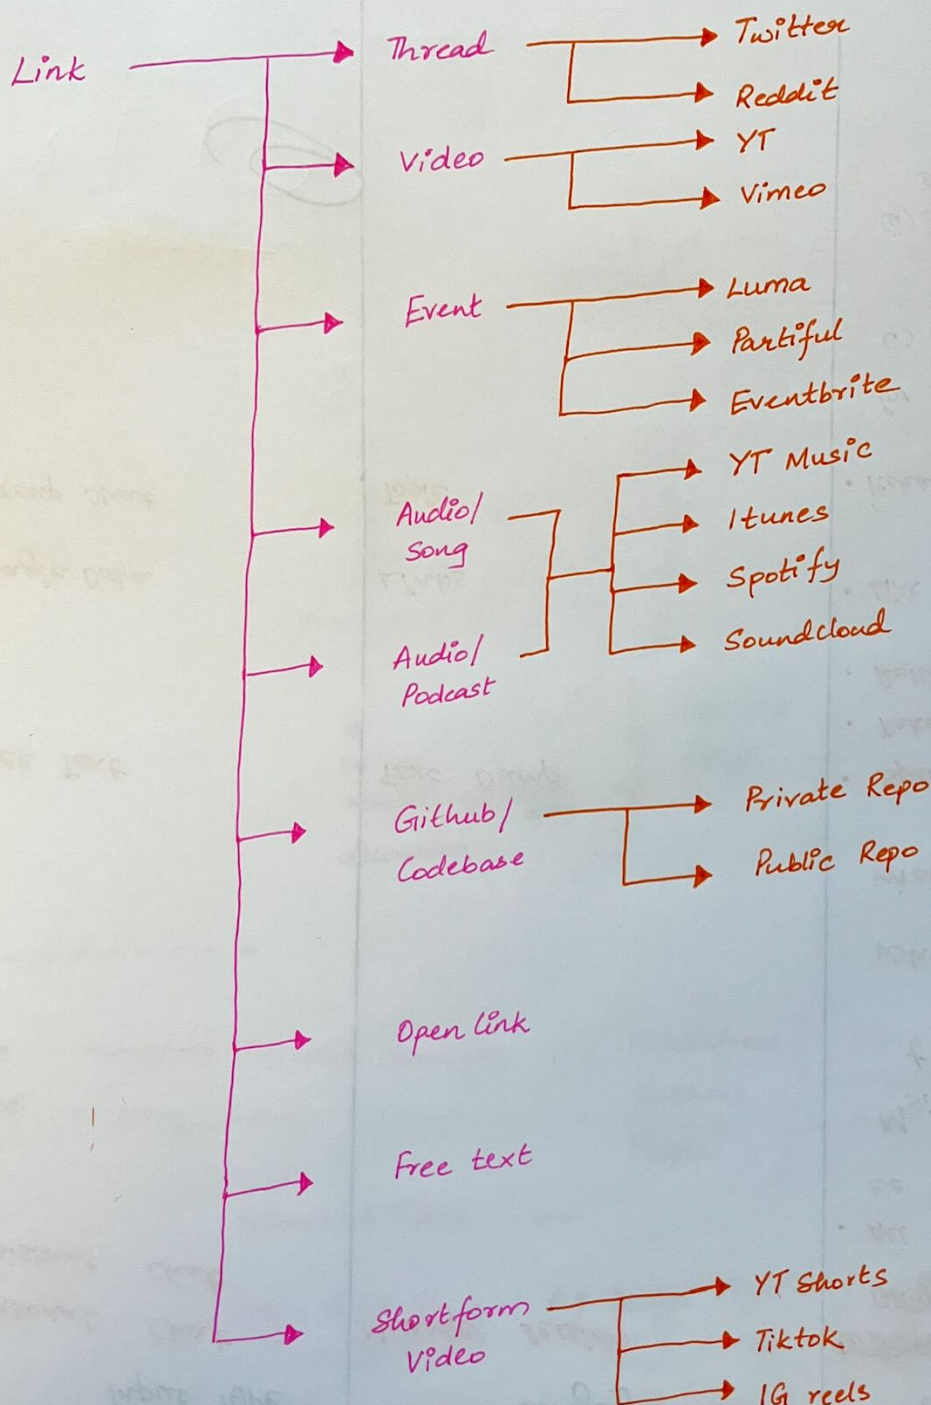 Link
Thread
Twitter
Reddit
Video
YT
Vimeo
Event
Luma
Partiful
Eventbrite
Audio/
Song
YT Music
Itunes
Spotify
Soundcloud
Audio/
Podcast
Github/
Codebase
Private Repo
Public Repo
Open link
Free text
Shortform
Video
YT Shorts
Tiktok
IG reels